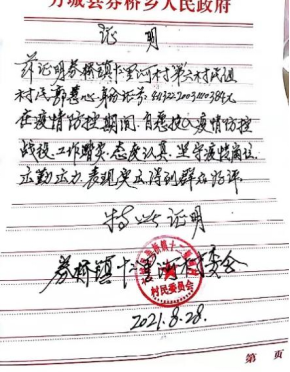 方城县券桥乡人民政府
证明
兹证明券桥镇十里河村第六村民组
村民郭慧心身份证号
在疫情防控期间,自愿投入疫情防控
战役,工作踏实,态度认真,坚守疫情岗位,
出勤出力,表现突出,得到群众好评。
特此证明
券桥镇十里河村委会
村民委员会
2021.8.28.
第 页